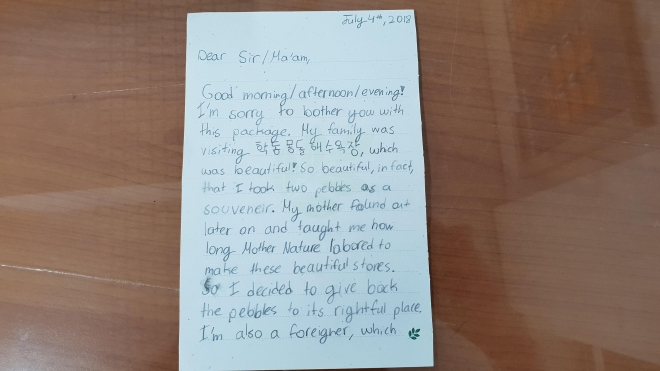 July 4th, 2018
Dear Sir/Ma'am,
Good morning/afternoon/evening!
I'm sorry to bother you with
this package. My family was
visiting 학동몽돌해수욕장, which
was beautiful! So beautiful, in fact,
that I took two pebbles as a
souveneir. My mother found out
later on and taught me how
long Mother Nature labored to
make these beautiful stores.
So I decided to give back
the pebbles to its rightful place.
I'm also a foreigner, which